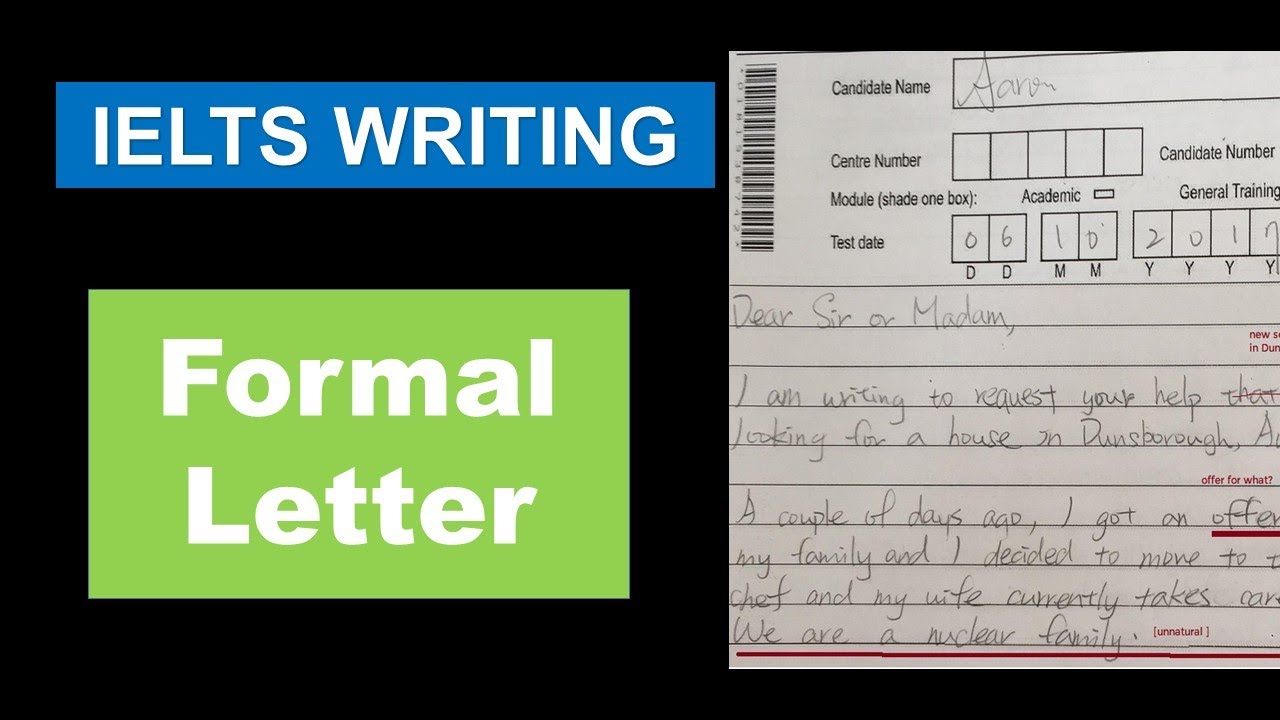 IELTS WRITING
Formal
Letter
Candidate Name Aaron
Centre Number Candidate Number
Module (shade one box): Academic General Training
Test date 0 6 1 0 2 0 1 7
D D M M Y Y Y Y
Dear Sir or Madam,
new
in Dun
I am writing to request your help that
looking for a house in Dunsborough,
offer for what?
A couple of days ago, I got an offer
my family and I decided to move to
chef and my wife currently takes
We are a nuclear family. [unnatural ]